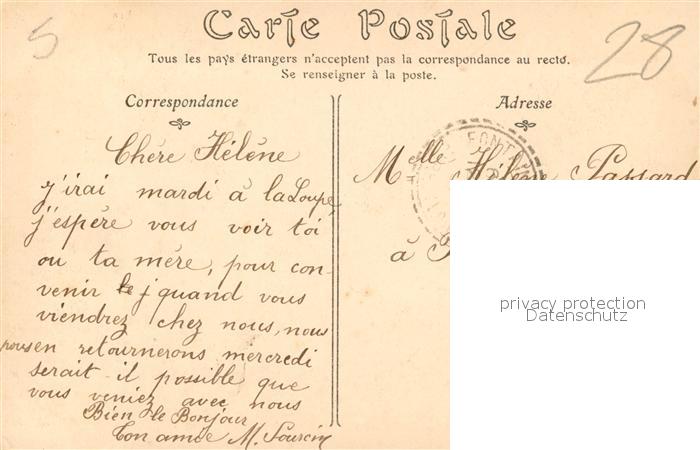 5
28
Carte Postale
Tous les pays étrangers n'acceptent pas la correspondance au recto.
Se renseigner à la poste.
Correspondance
Chére Hélène
j'irai mardi à la Loupe,
j'espére vous voir toi
ou ta mére, pour con-
venir j quand vous
viendrez chez nous, nous
nous en retournerons mercredi
serait-il possible que
vous veniez avec nous
Bien le Bonjour
Ton amie M.
Adresse
Melle Hélène Passard
à
FONT
privacy protection
Datenschutz